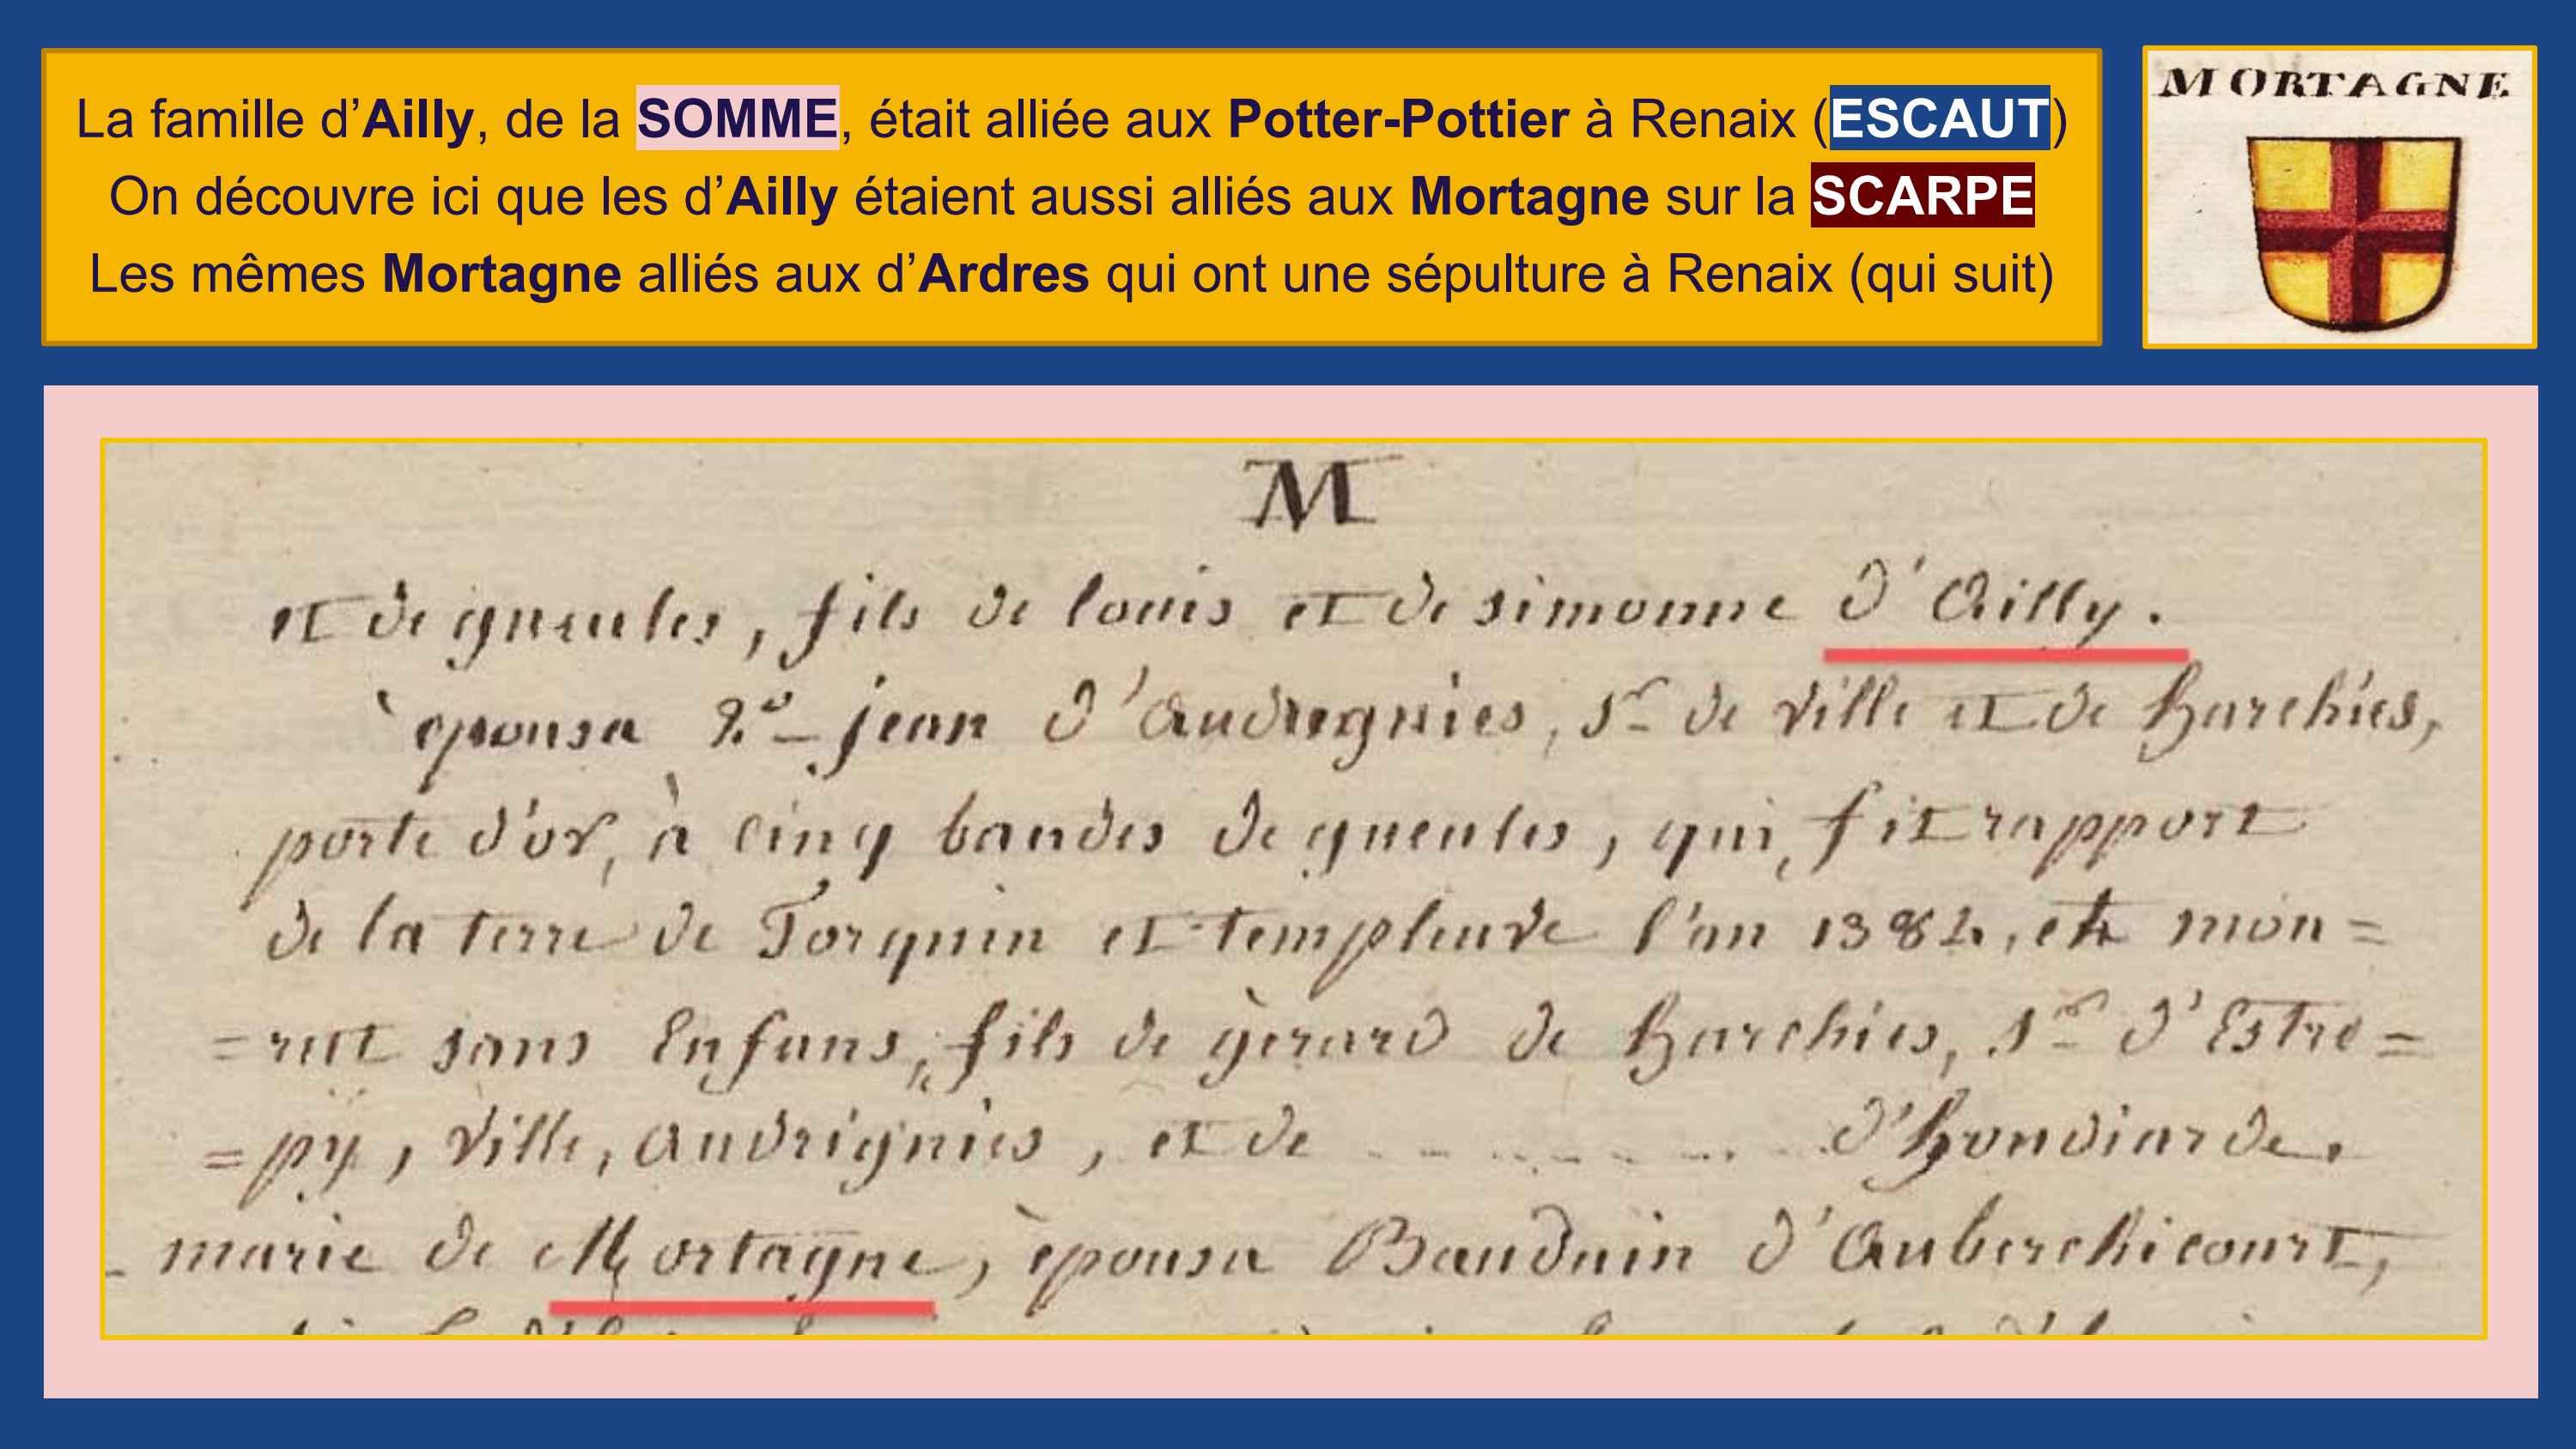 La famille d’Ailly, de la SOMME, était alliée aux Potter-Pottier à Renaix (ESCAUT)
On découvre ici que les d’Ailly étaient aussi alliés aux Mortagne sur la SCARPE
Les mêmes Mortagne alliés aux d’Ardres qui ont une sépulture à Renaix (qui suit)
MORTAGNE
M
et de gueules, fils de louis et de simonne d'Ailly.
épousa 2.o jean d'Audregnies, sr de ville et de harchies,
porte d'or, à cinq bandes de gueules, qui fit rapport
de la terre de Forquin et templeuve l'an 1382, et mou=
=rut sans Enfans, fils de gèrard de harchies, sr d'Estre=
=py, ville, audrignies, et de ........... d'hondiarde.
_ marie de Mortagne, èpousa Bauduin d'Auberchicourt,